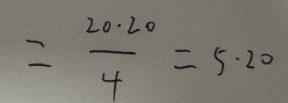 = 20·20 / 4 = 5·20